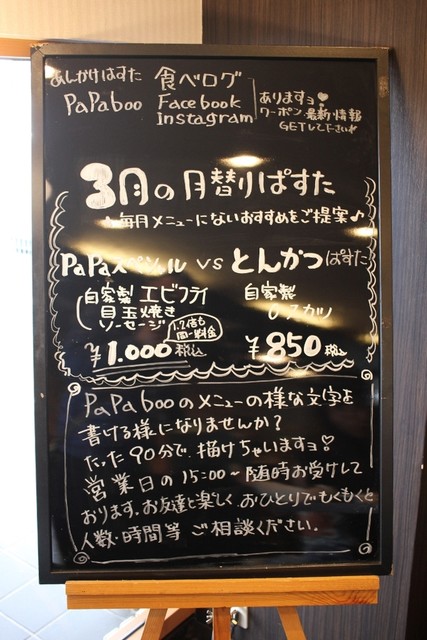 あんかけぱすた
PaPaboo
食べログ
Facebook
Instagram
ありますョ♥
クーポン 最新情報
GETして下さいね
3月の月替りぱすた
♪毎月メニューにないおすすめをご提案♪
PaPaスペシャル VS とんかつぱすた
自家製エビフライ
目玉焼き
ソーセージ
1.2倍も
同一料金
¥1.000税込
自家製
ロースカツ
¥850税込
PaPabooのメニューの様な文字を
書ける様になりませんか?
たった90分で、描けちゃいますョ♡
営業日の15:00~随時お受けして
おります。お友達と楽しく、おひとりでもくもくと
人数・時間等 ご相談ください.